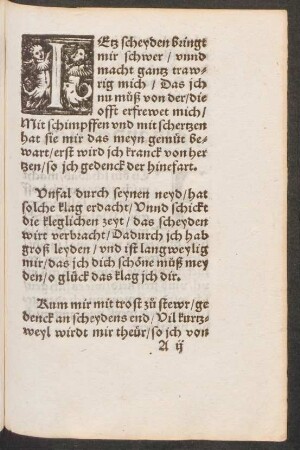 IEtz scheyden bringt
mir schwer / vnnd
macht gantz traw-
rig mich / Das jch
nu můß von der / die
offt erfrewet mich /
Mit schimpffen vnd mit schertzen
hat sie mir das meyn gemüt be-
wart / erst wird jch kranck von her
tzen / so jch gedenck der hinefart.
Vnfal durch seynen neyd / hat
solche klag erdacht / Vnnd schickt
die kleglichen zeyt / das scheyden
wirt verbracht / Dadurch jch hab
groß leyden / vnd ist langweylig
mir / das jch dich schöne můß mey
den / o glück das klag jch dir.
Kum mir mit trost zů stewr / ge
denck an scheydens end / Vil kurtz-
weyl wirdt mir theür / so jch von
A ij